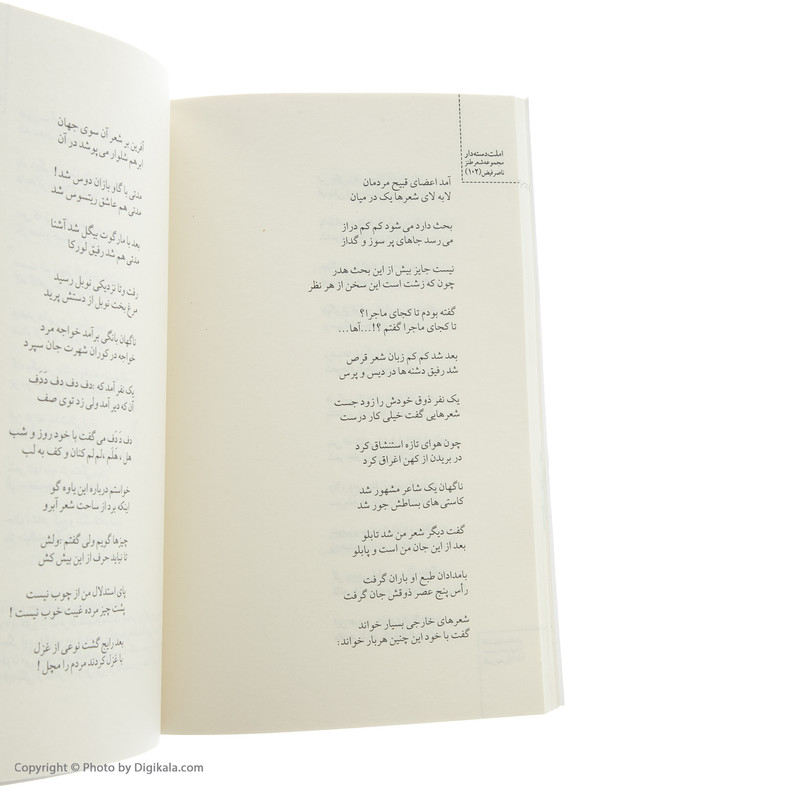 املت دسته‌دار
مجموعه شعر طنز
ناصر فیض (۱۰۲)
آمد اعضای قبیح مردمان
لابه لای شعرها یک در میان
بحث دارد می شود کم کم دراز
می رسد جاهای پر سوز و گداز
نیست جایز بیش از این بحث هدر
چون که زشت است این سخن از هر نظر
گفته بودم تا کجای ماجرا؟
تا کجای ماجرا گفتم ؟!...آها...
بعد شد کم کم زبان شعر قرص
شد رفیق دشنه ها در دیس و پرس
یک نفر ذوق خودش را زود جست
شعرهایی گفت خیلی کار درست
چون هوای تازه استنشاق کرد
در بریدن از کهن اغراق کرد
ناگهان یک شاعر مشهور شد
کاستی های بساطش جور شد
گفت دیگر شعر من شد تابلو
بعد از این جان من است و پابلو
بامدادان طبع او باران گرفت
رأس پنج عصر ذوقش جان گرفت
شعرهای خارجی بسیار خواند
گفت با خود این چنین هربار خواند:
آفرین بر شعر آن سوی جهان
ابر هم شلوار می پوشد در آن
مدتی با گاو بازان دوس شد !
مدتی هم عاشق ریتسوس شد
بعد با مارگوت بیگل شد آشنا
مدتی هم شد رفیق لورکا
رفت و تا نزدیکی نوبل رسید
مرغ بخت نوبل از دستش پرید
ناگهان بانگی برآمد خواجه مرد
خواجه در کوران شهرت جان سپرد
یک نفر آمد که :دف دف دف دَدَف
آن که دیر آمد ولی زد توی صف
دف دَدَف می گفت با خود روز و شب
هل ،هَلَم ،لم لم کنان و کف به لب
خواستم درباره این یاوه گو
اینکه برد از ساحت شعر آبرو
چیزها گویم ولی گفتم :ولش
تا نیاید حرف از این بیش کش
پای استدلال من از چوب نیست
پشت چیز مرده غیبت خوب نیست !
بعد رایج گشت نوعی از غزل
با غزل کردند مردم را مچل !
Copyright © Photo by Digikala.com